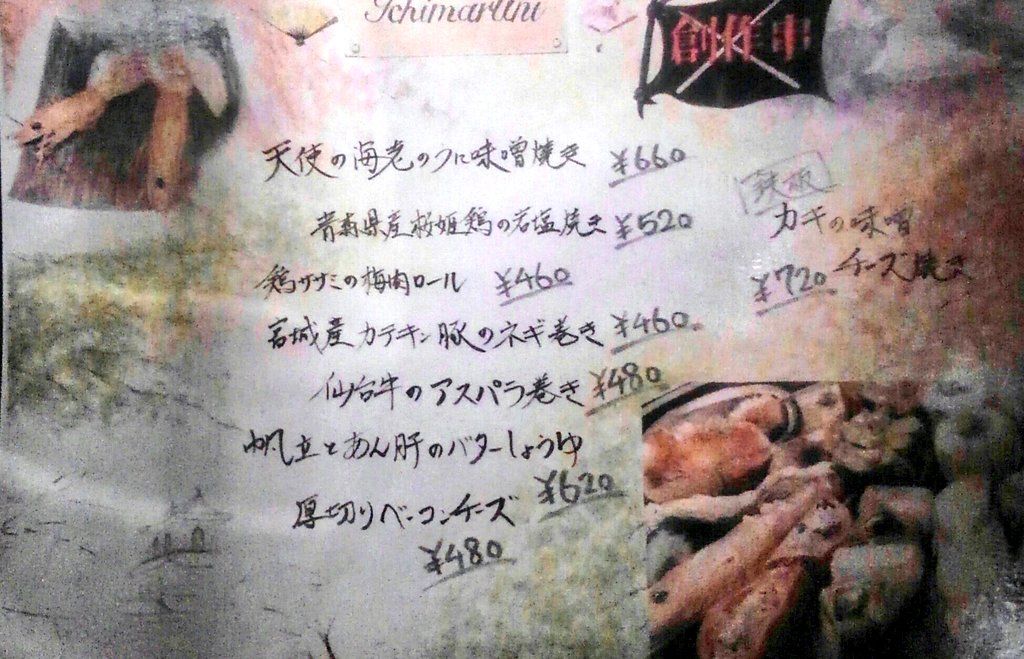 Ichimaruni
創作串
天使の海老のカニ味噌焼き ¥660
青森県産桜姫鶏の岩塩焼き ¥520
鶏ササミの梅肉ロール ¥460
宮城産カテキン豚のネギ巻き ¥460
仙台牛のアスパラ巻き ¥480
帆立とあん肝のバターしょうゆ
¥620
厚切りベーコンチーズ
¥480
鉄板
カキの味噌
チーズ焼き
¥720